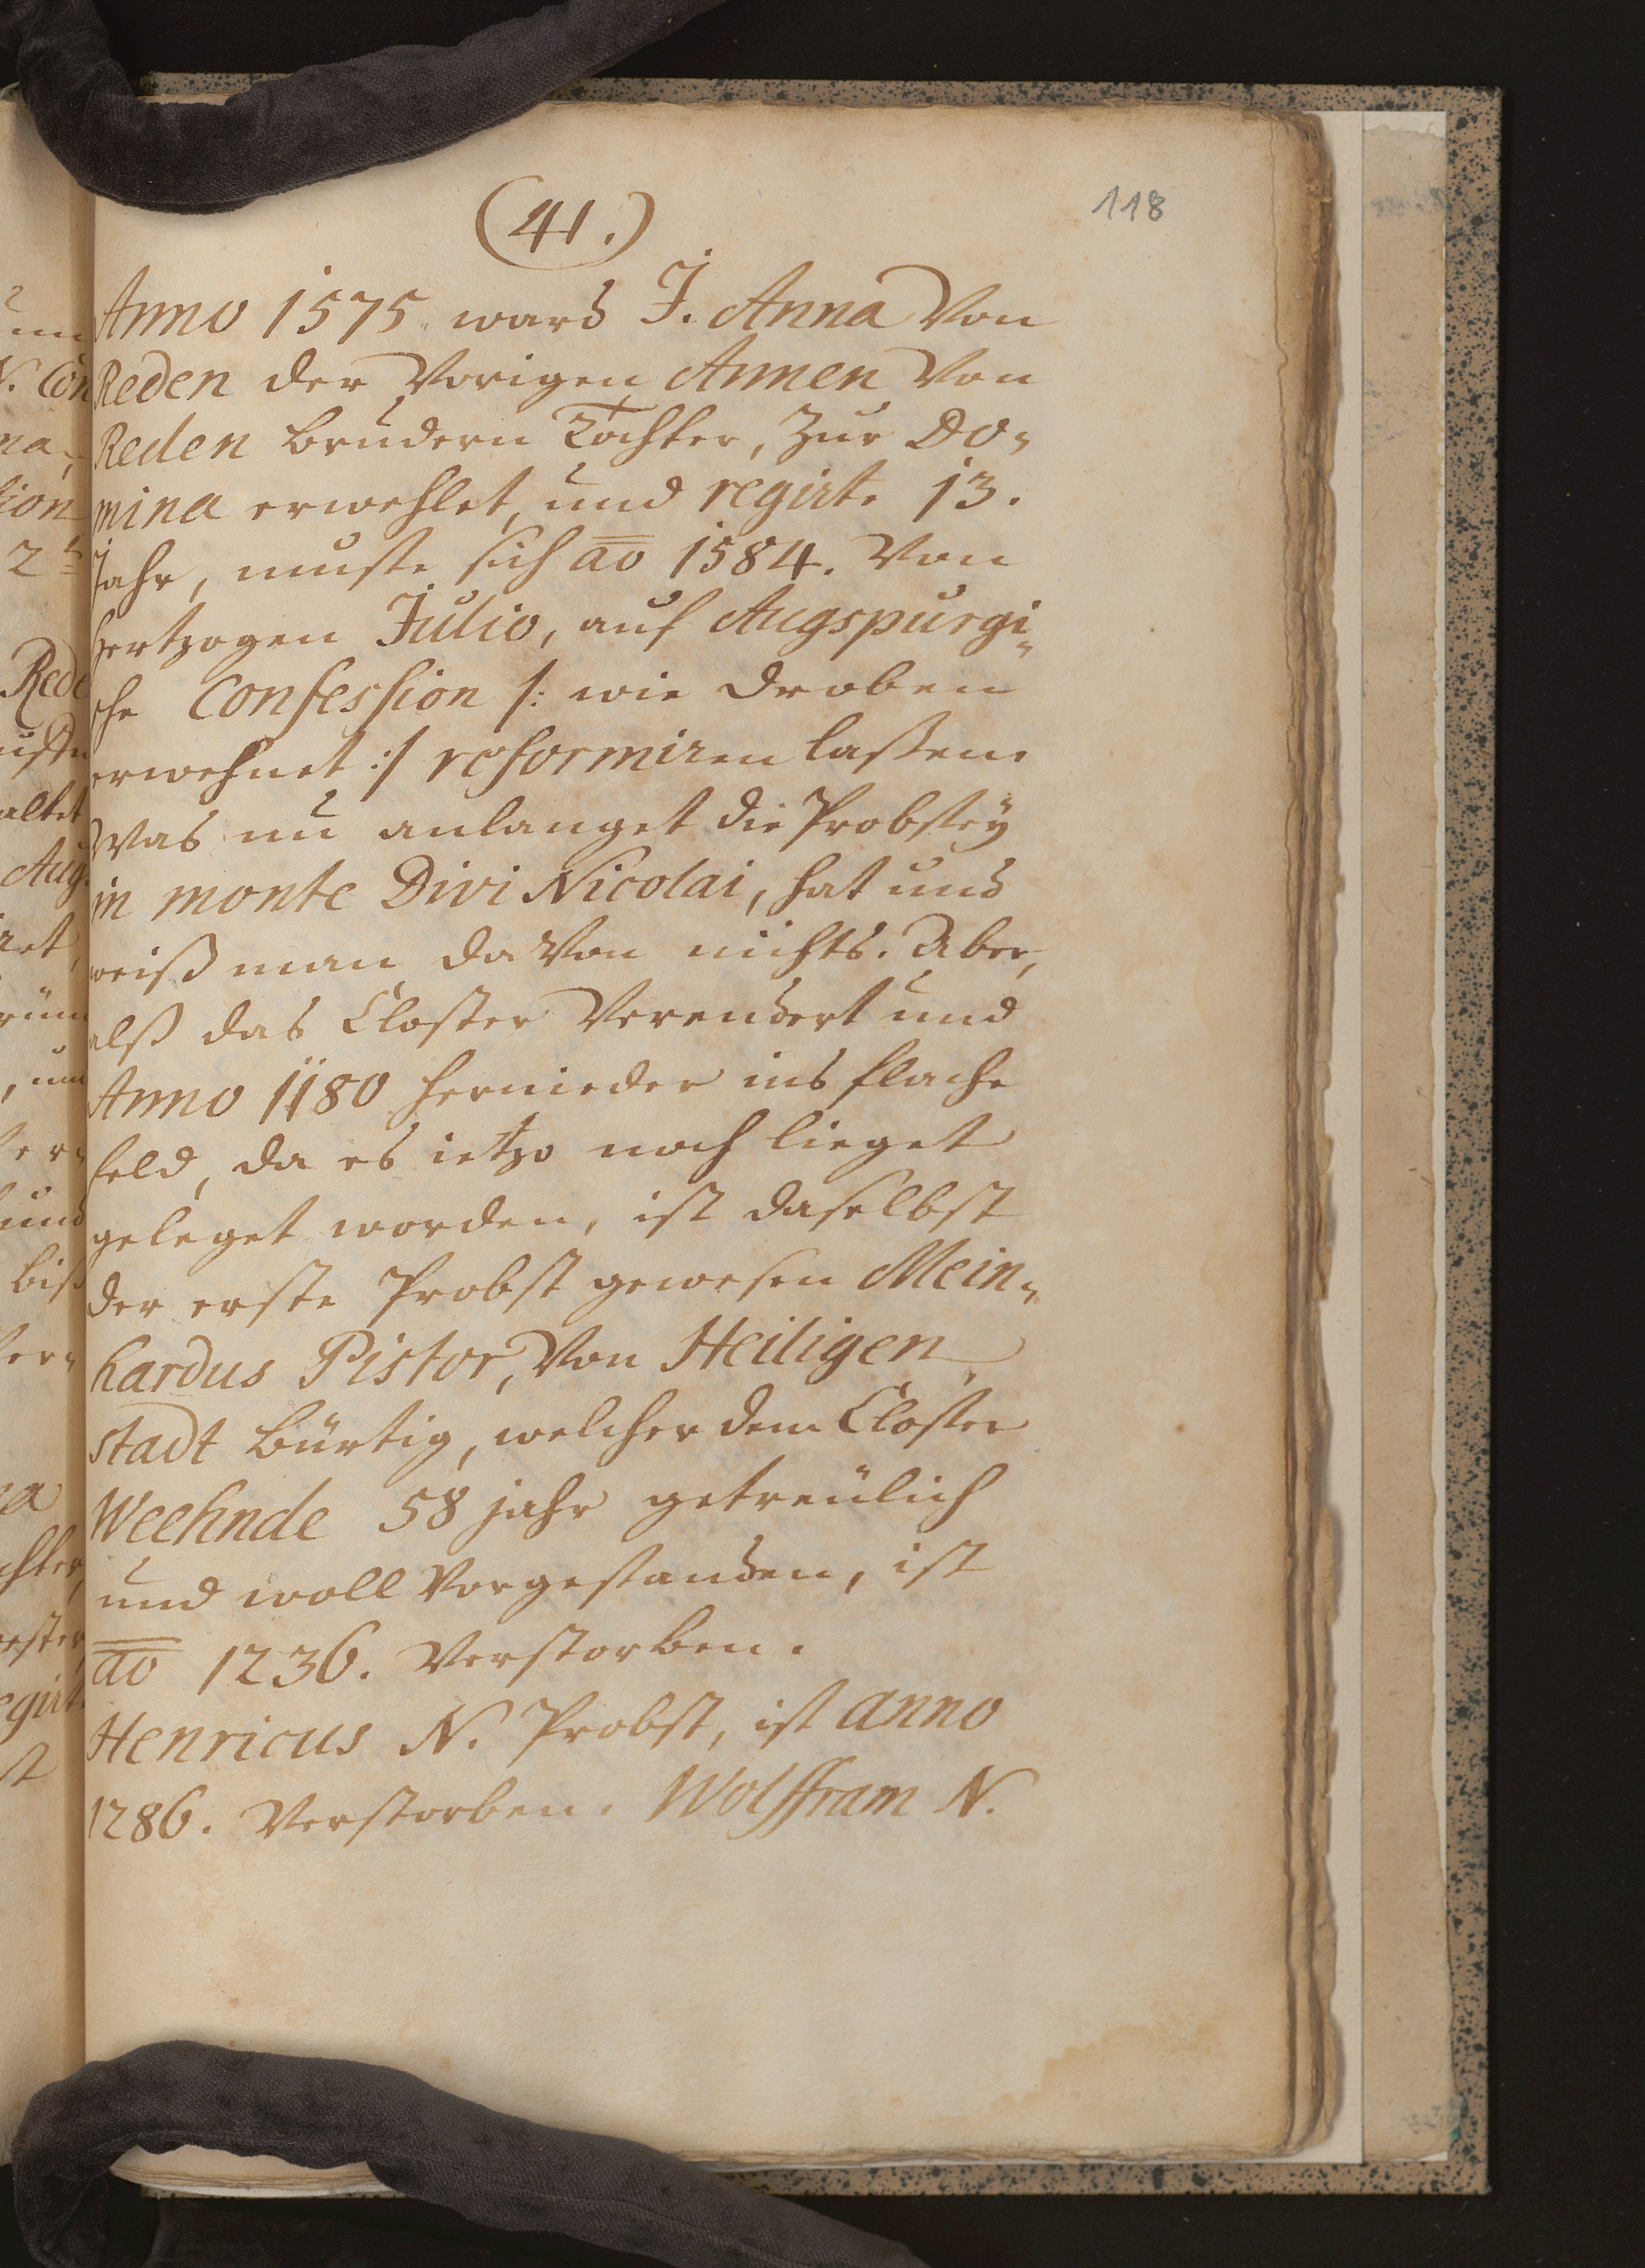 (41.)
118
Anno 1575. ward J. Anna Von
Reden der Vorigen Annen Von
Reden brudern Tochter, Zur Do„
mina erwehlet, und regirte 13.
Jahr, muste sich ao 1584. Von
Hertzogen Julio, auf Augspurgi„
che Confession /: wie droben
erwehnet :/ reformiren laßen.
Was nu anlanget die Probstey
in monte Divi Nicolai, hat und
weiß man da Von nichts. Aber,
alß das Closter Verendert und
Anno 1180 hernieder ins flache
feld, da es ietzo noch lieget
geleget worden, ist daselbst
der erste Probst gewesen Mein„
hardus Pistor, Von Heiligen„
stadt bürtig, welcher dem Closter
Weehnde 58 jahr getreülich
und woll Vorgestanden, ist
ao 1236. Verstorben.
Henricus N. Probst, ist anno
1286. Verstorben. Wolffram N.